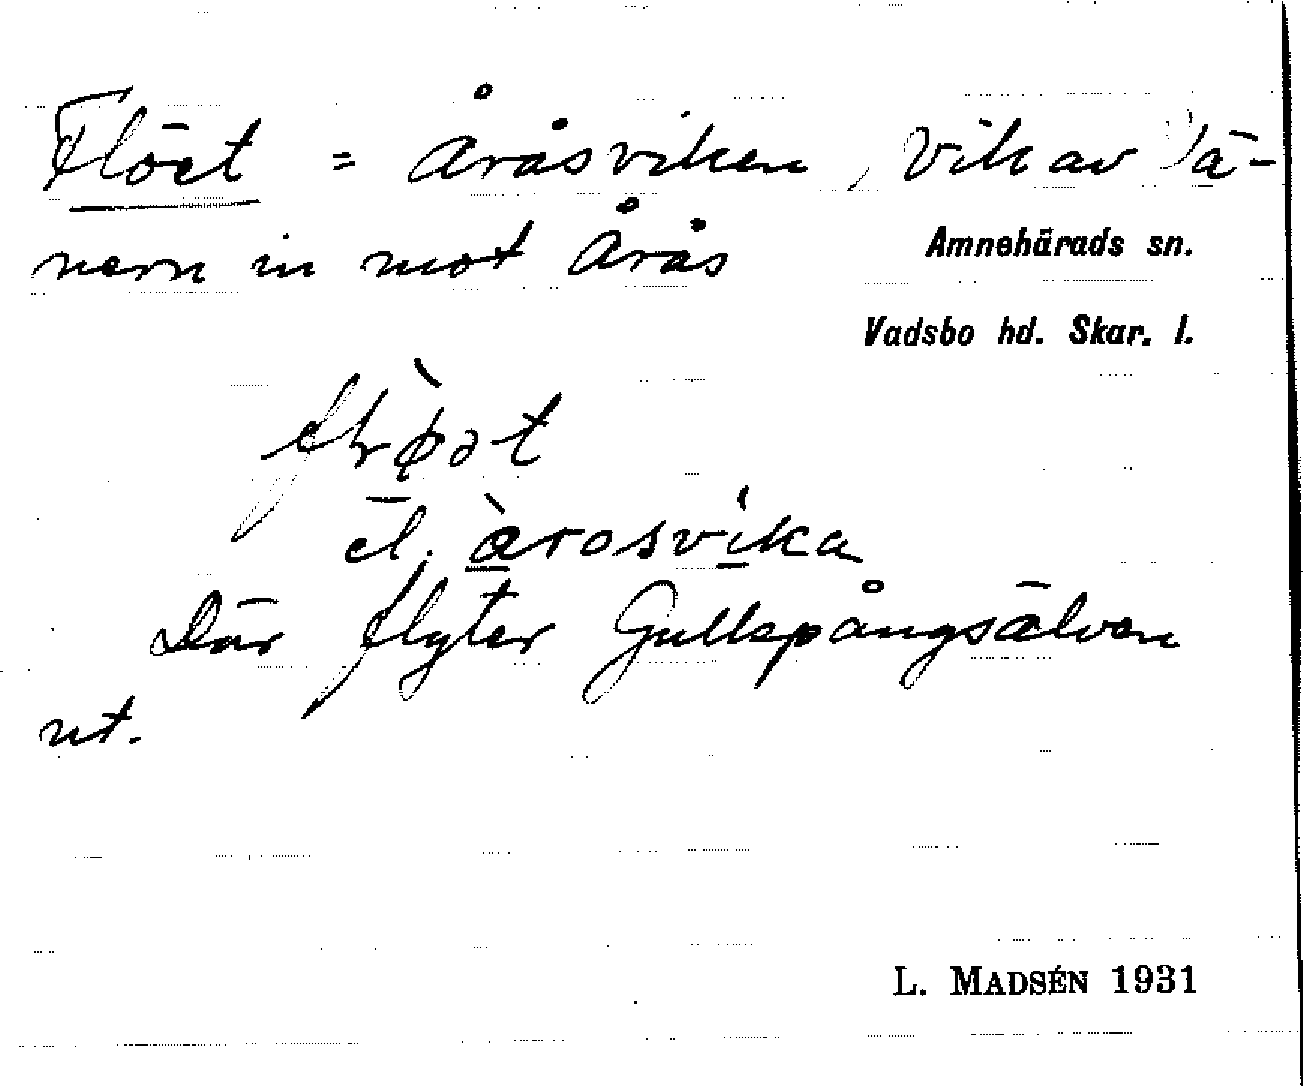 Flöet = Åråsviken, vik av Vä-
nern in mot Årås
Amnehärads sn.
Vadsbo hd. Skar. l.
el. àrosvika
Där flyter Gullspångsälven
ut.
L. MADSÉN 1931